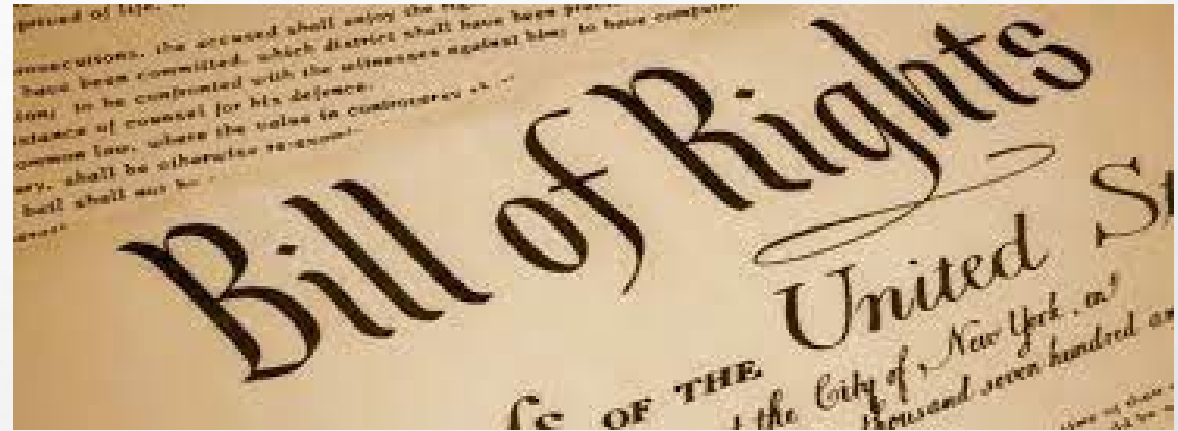 prived of life,
prosecutions, the accused shall enjoy the
have been committed, which district shall have been
tion; to be confronted with the witnesses against him; to have
sistance of counsel for his defence.
ommon law, where the value in controversy sh
ury, shall be otherwise re-exam
bail shall not be
Bill of Rights
United St
s OF THE
t the City of New York, on
thousand seven hundred an